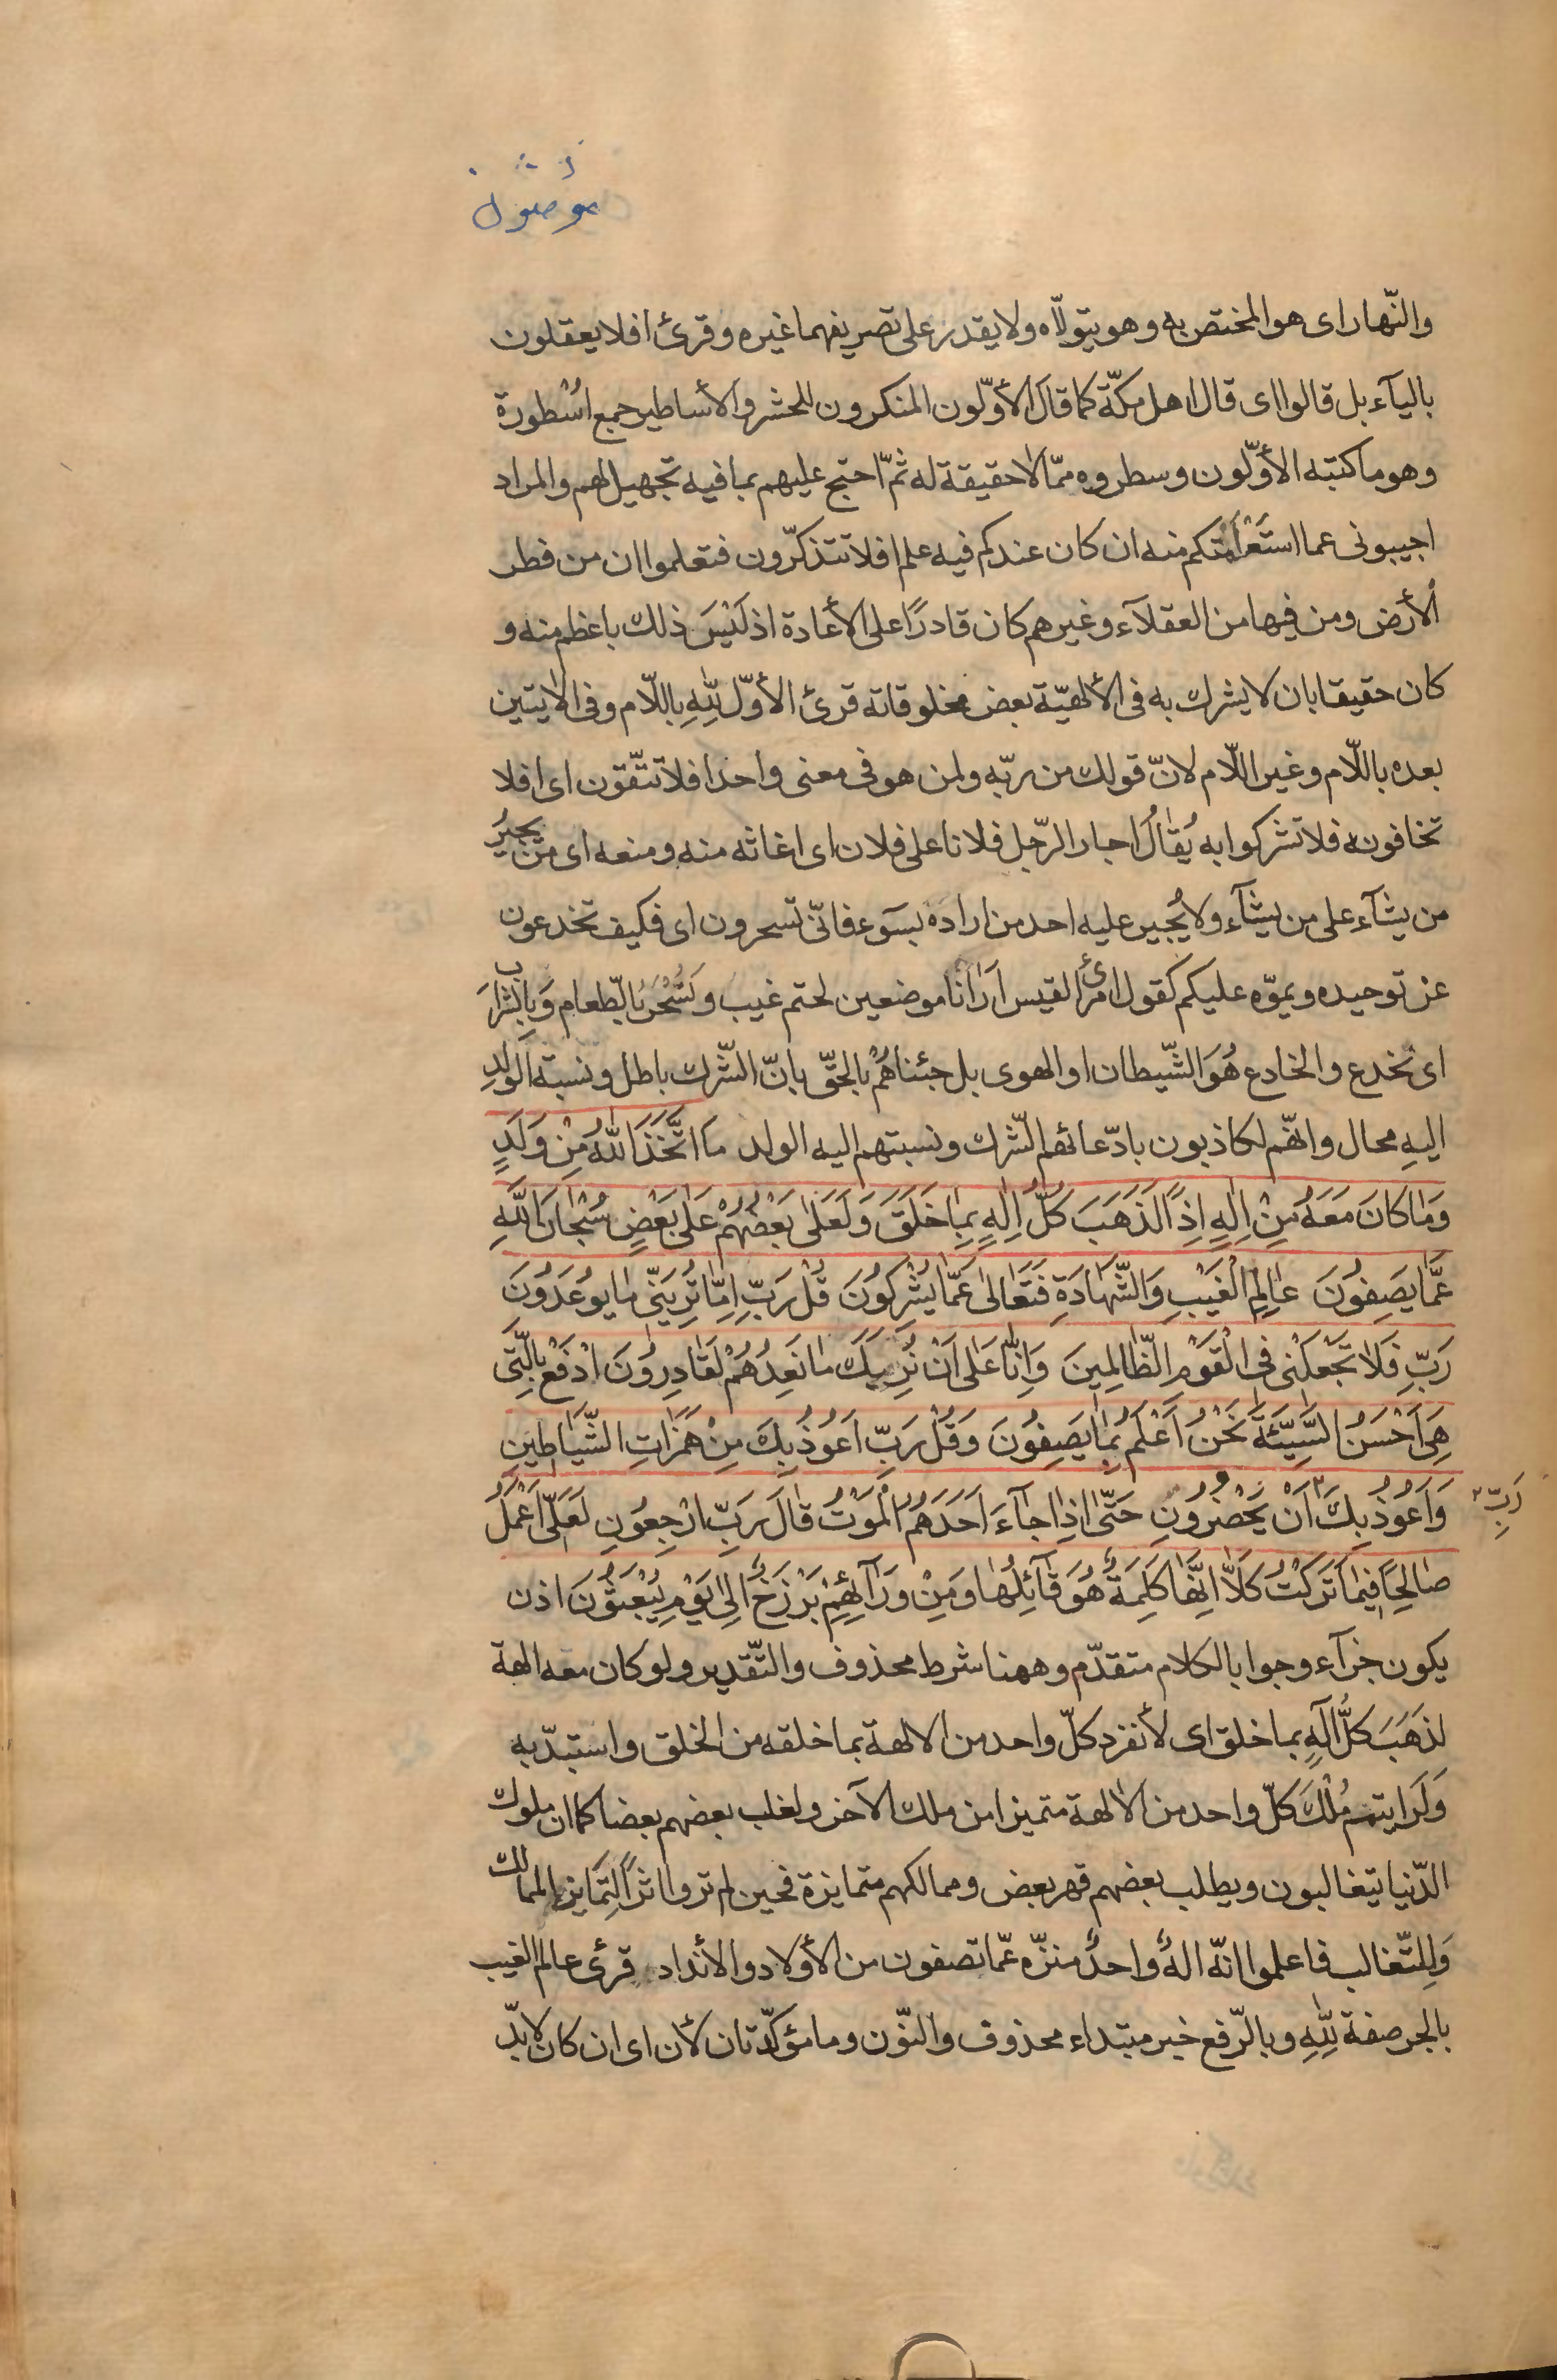 والنّهار اى هو المختص به وهو يتولّاه ولا يقدر على تصريفهما غيره وقرئ افلا يعقلون
باليآء بل قالوا اى قال اهل مكّة كما قال الأوّلون المنكرون للحشر والأساطير جمع اُسْطورة
وهو ما كتبه الأوّلون وسطروه ممّا لا حقيقة له ثمّ احتج عليهم بما فيه تجهيل لهم والمراد
اجيبونى عما منه ان كان عندكم فيه علم افلا تتذكّرون فتعلموا ان من فطر
الأرض ومن فيها من العقلآء وغيرهم كان قادرًا على الأعادة اذ لَيْسَ ذلك باعظم منه و
كان حقيقا بان لا يشرك به فى الألهيّة بعض مخلوقاته قرئ الأوّل لِلّٰهِ باللّام وفى الايتين
بعده باللّام وغير اللّام لانّ قولك من ربّه ولمن هو فى معنى واحد افلا تتّقون اى افلا
تخافونه فلا تشركوا به يُقالُ اجار الرّجل فلانا على فلان اى اغاثه منه ومنعه اى من يجيرُ
من يشآء على من يشآء ولا يُجير عليه احد من اراده بسوء فانّى تسحرون اى فكيف تخدعون
عن توحيده ويموّه عليكم كقول امرئ القيس اَرٰانٰا موضعين لحتم غيب وَنُسْحَرُ بالطّعام وَبِالشَّرابِ
اى نخدع والخادع هُوَ الشّيطان او الهوى بل جئناهُمْ بالحقّ بانّ الشّرك باطل ونسبة الولدِ
اليهِ محال وانّهم لكاذبون بادّعائهم الشّرك ونسبتهم اليه الولد مَا اتَّخَذَ اللّٰهُ مِنْ وَلَدٍ
وَمٰا كانَ مَعَهُ مِنْ اِلٰهٍ اِذًا لَذَهَبَ كُلُّ اِلٰهٍ بِمٰا خَلَقَ وَلَعَلٰى بَعْضُهُمْ عَلٰى بَعْضٍ سُبْحٰانَ اللّٰهِ
عَمّٰا يَصِفُونَ عٰالِمِ الْغَيْبِ وَالشَّهٰادَةِ فَتَعٰالىٰ عَمّٰا يُشْرِكُونَ قُلْ رَبِّ اِمّٰا تُرِيَنّى مٰا يُوعَدُونَ
رَبِّ فَلٰا تَجْعَلْنى فِى الْقَوْمِ الظّٰالِمينَ وَاِنّٰا عَلٰى اَنْ نُرِيَكَ مٰا نَعِدُهُمْ لَقٰادِرُونَ ادْفَعْ بِالَّتى
هِىَ اَحْسَنُ السَّيِّئَةَ نَحْنُ اَعْلَمُ بِمٰا يَصِفُونَ وَقُلْ رَبِّ اَعُوذُ بِكَ مِنْ هَمَزٰاتِ الشَّيٰاطينِ
وَاَعُوذُ بِكَ اَنْ يَحْضُرُونِ حَتّٰى اِذٰا جٰآءَ اَحَدَهُمُ الْمَوْتُ قٰالَ رَبِّ ارْجِعُونِ لَعَلّى اَعْمَلُ
رَبِّ
صٰالِحًا فيمٰا تَرَكْتُ كَلّٰا اِنَّهٰا كَلِمَةٌ هُوَ قٰآئِلُهٰا وَمِنْ وَرٰآئِهِمْ بَرْزَخٌ اِلىٰ يَوْمِ يُبْعَثُونَ اذن
يكون جزآء وجوابا لكلام متقدّم وههنا شرط محذوف والتّقدير ولو كان معه الهة
لذَهَبَ كلُّ اِلٰهٍ بما خلق اى لأنفرد كلّ واحد من الالهة بما خلقه من الخلق واستبدّ به
وَلَرَايتم مُلْكَ كلّ واحد من الالهة متميزا من ملك الآخر ولغلب بعضهم بعضا كما ان ملوك
الدّنيا يتغالبون ويطلب بعضهم قهر بعض وممالكهم متمايزة فحين لم تروا اثرًا لِتمَايز الممالك
وَلِلتّغالب فاعلموا انّه الهٌ واحدٌ منزّه عمّا تصفون من الأولاد والأنداد قرئ عالم الغيب
بالجر صفة لِلّٰهِ وبالرّفع خبر مبتداء محذوف والنّون وما مؤكّدتان لأن اى ان كان لابدّ